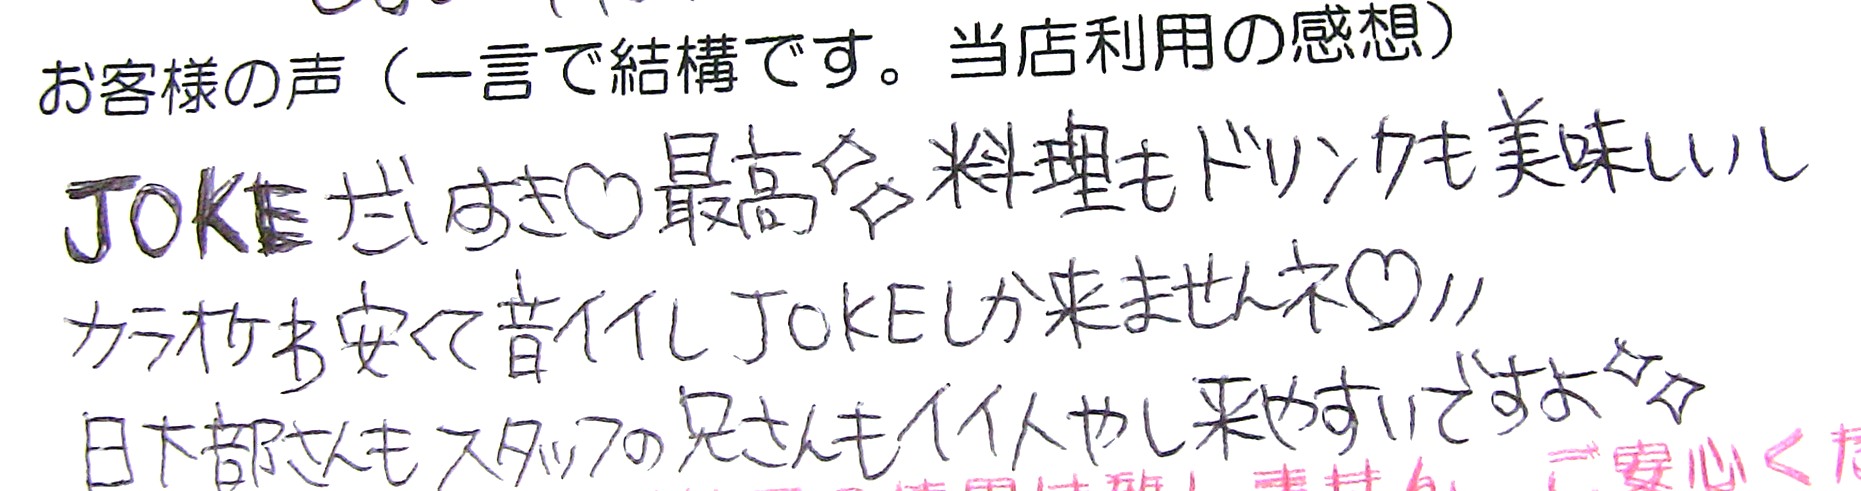 お客様の声（一言で結構です。当店利用の感想）
JOKEだいすき♡最高✧✧料理もドリンクも美味しいし
カラオケも安くて音イイしJOKEしか来ませんネ♡〃
日下部さんもスタッフの兄さんもイイ人やし来やすいですよ✧✧
ご安心くだ